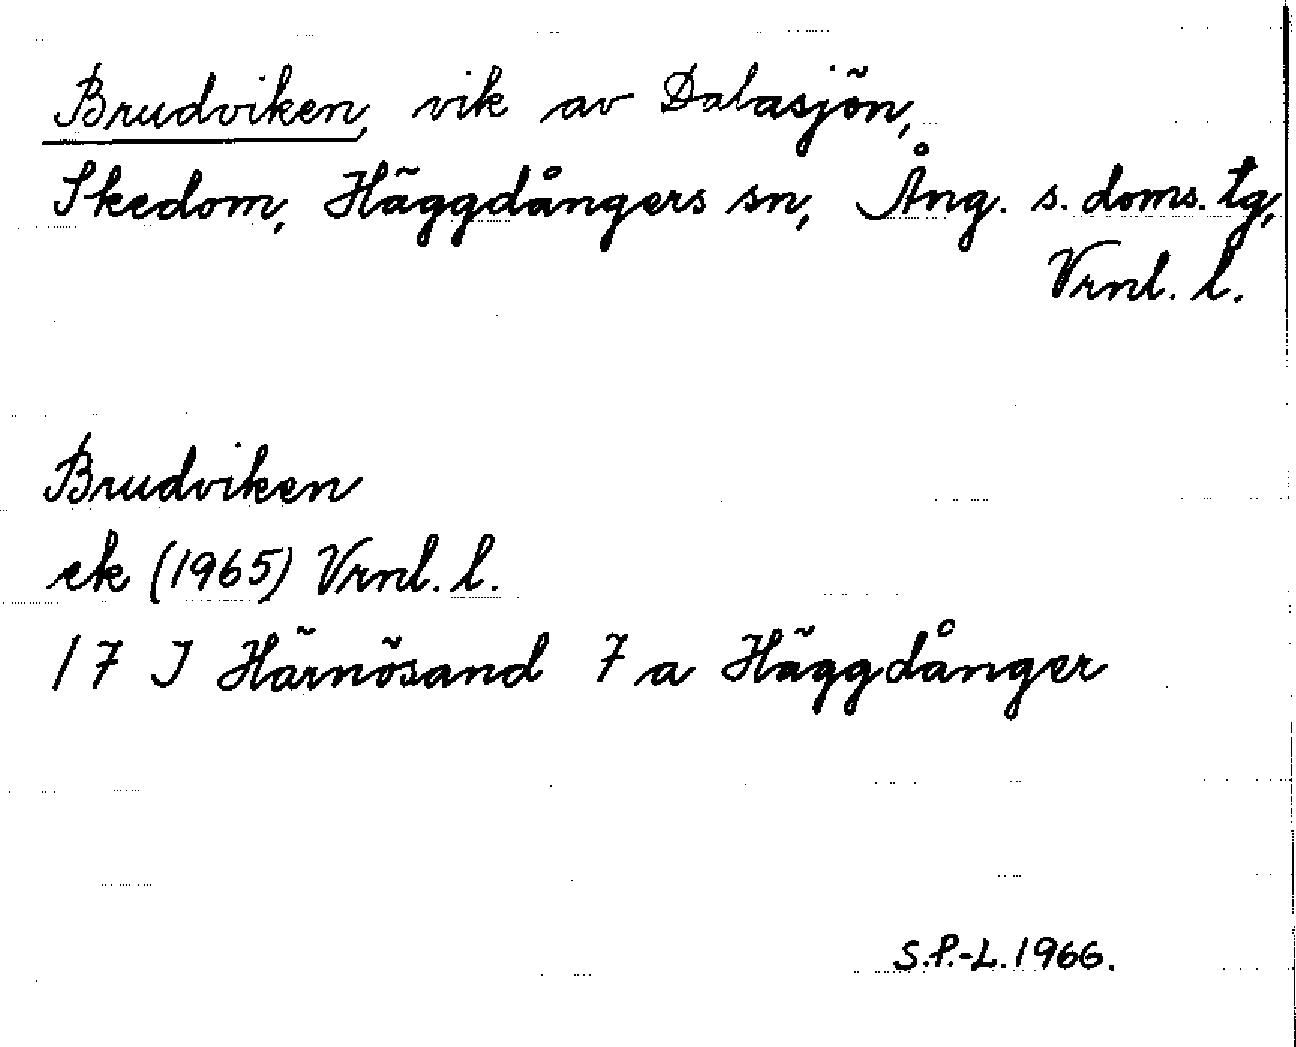 Brudviken, vik av Dalasjön,
Skedom, Häggdångers sn, Ång. s. doms. tg,
Vrnl. l.
Brudviken
ek (1965) Vrnl. l.
17 J Härnösand 7 a Häggdånger
S.P.-L. 1966.